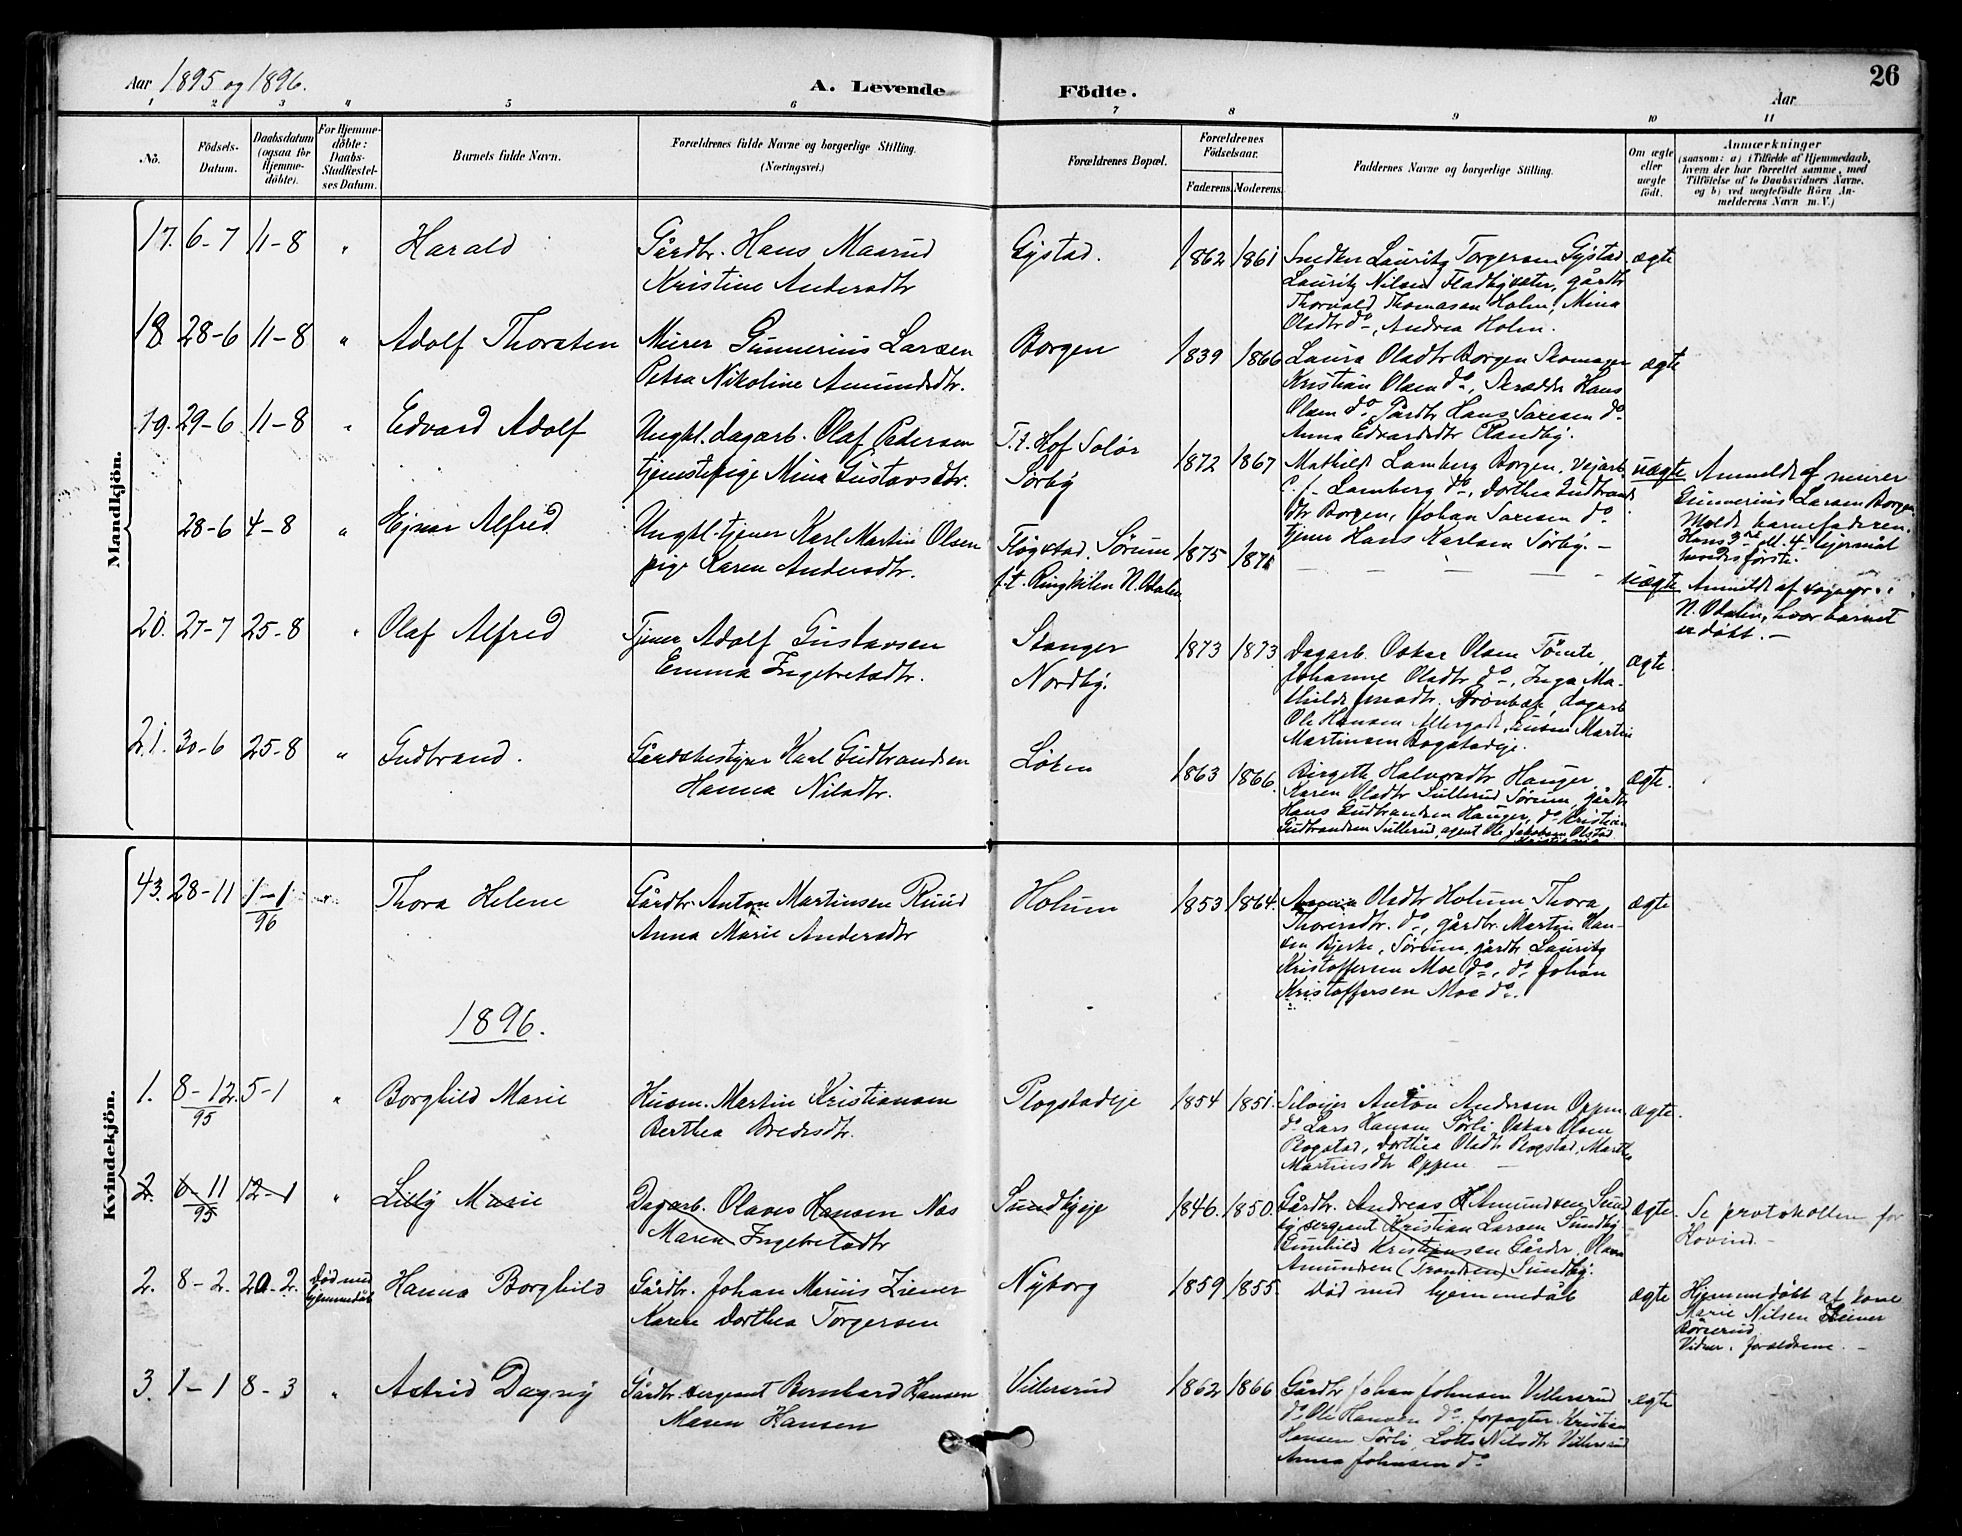 26
Aar 1895 og 1896.
A. Levende Födte.
Aar
1 2 3 4 5 6 7 8 9 10 11
No.
Födsels-Datum.
Daabsdatum (ogsaa for Hjemme-döbte).
For Hjemme-döbte: Daabs-Stadfæstel-ses Datum.
Barnets fulde Navn.
Forældrenes fulde Navne og borgerlige Stilling. (Næringsvei.)
Forældrenes Bopæl.
Forældrenes Födselsaar.
Faderens. Moderens.
Faddernes Navne og borgerlige Stilling.
Om ægte eller uægte födt.
Anmærkninger
(saasom: a) i Tilfælde af Hjemmedaab, hvem der har forrettet samme, med Tilföielse af to Daabsvidners Navne, og b) ved uægtefödte Börn An-melderens Navn m. V.)
Mandkjön.
17. 6-7 11-8 " Harald
Gårdbr. Hans Maarud
Kristine Andersdtr
Gystad.
1862 1861
Snedker Lauritz Torgersen Gystad
Lauritz Nilsen Fladbyseter, gårdbr
Thorvald Thomasen Holm, Mina
Olsdtr do, Andrea Holm.
ægte
18. 28-6 11-8 " Adolf Thorsten
Murer Gunnerius Larsen
Petra Nikoline Amundsdtr.
Borgen
1839 1866
Laura Olsdtr Borgen Skomager
Kristian Olsen do, Skrædder Hans
Olsen do, Gårdbr Hans Saxesen do
Anna Edvardsdtr Randby.
ægte
19. 29-6 11-8 " Edvard Adolf
Ungkl. dagarb. Olaf Pedersen
tjenestepige Mina Gustavsdtr.
F.t. Hof Solør
Sørby
1872 1867
Mathilde Lamberg Borgen, Vejarb.
Lamberg do, Dorthea Gudbrands
dtr Borgen, Johan Saxesen do
tjener Hans Karlsen Sørby. -
uægte
Anmeldt af murer
Gunnerius Larsen Borgen.
Moldt barnefaderen.
Hans 3die ell. 4 lejermål
hendes første.
28-6 4-8 " Ejnar Alfred
Ungkl. tjener Karl Martin Olsen
pige Karen Andersdtr.
Fløgstad, Sørum
f.t. Ringkilen N. Odalen
1875 1871
- - - -
uægte
Anmeldt af sognepr. i
N. Odalen, hvor barnet
er døbt. -
20. 27-7 25-8 " Olaf Alfred
Tjener Adolf Gustavsen
Emma Ingebretsdtr.
Stanger
Nordby.
1873 1873
Dagarb. Oskar Olsen Tømte,
Johanne Olsdtr do, Inga Ma-
thilde Trønbak, dagarb
Ole Hansen Martin
Martinsen Bogstadeje.
ægte
21. 30-6 25-8 " Gudbrand.
Gårdsbestyrer Karl Gudbrandsen
Hanna Nilsdtr.
Løken
1863 1866.
Birgithe Halvorsdtr Hauger
Karen Olsdtr Sullerud Sørum, gårdbr
Hans Gudbrandsen Hauger, do Kristian
Gudbrandsen Sullerud, agent Ole Jakobsen Olstad
Kristiania
ægte.
Kvindekjön.
43. 28-11 1-1/96 " Thora Helene
Gårdbr. Anton Martinsen Ruud
Anna Marie Andersdtr
Holum
1853 1864.
Anna Olsdtr Holum Thora
Thorersdtr. do, gårdbr. Martin Han-
sen Bjerke, Sørum, gårdbr. Lauritz
Kristoffersen Moe do, do Johan
Kristoffersen Moe do.
ægte
1896.
1. 8-12/95 5-1 " Borghild Marie
Husm. Martin Kristiansen
Berthea Bredesdtr.
Plogstadeje
1854 1851.
Selvejer Anton Andersen Oppen
do Lars Hansen Sørli Oskar Olsen
Plogstad, Dorthea Olsdtr Plogstad, Marthe
Martinsdtr Oppen -
ægte.
2. 6-11/95 12-1 " Lilly Marie
Dagarb. Olaves Hansen Næs
Maren Ingebretsdtr
Sundbyeje
1846. 1850.
Gårdbr. Andreas Amundsen Sund
by sergeant Kristian Larsen Sundby
Gunhild Kristiansen Gårder, Olava
Amundsen (Trondsen) Sundby.
ægte.
Se protokollen for
Hovind. -
2. 8-2. 20-2. Død med hjemmedåb Hanna Borghild
Gårdbr. Johan Marius Ziener
Karen Dorthea Torgersen
Nyborg
1859 1855.
Død med hjemmedåb
ægte
Hjemmedøbt af kone
Marie Nilsen Ziener
Børserud
Vidner: forældrene. -
3. 1-1 8-3 " Astrid Dagny
Gårdbr. sergeant Bernhard Hansen
Maren Hansen
Villersrud
1862 1866
Gårdbr Johan Johnsen Villersrud
do Ole Hansen do. forpagter Kristian
Hansen Sørli, Lotte Nilsdtr Villersrud
Anna Johnsen do
ægte